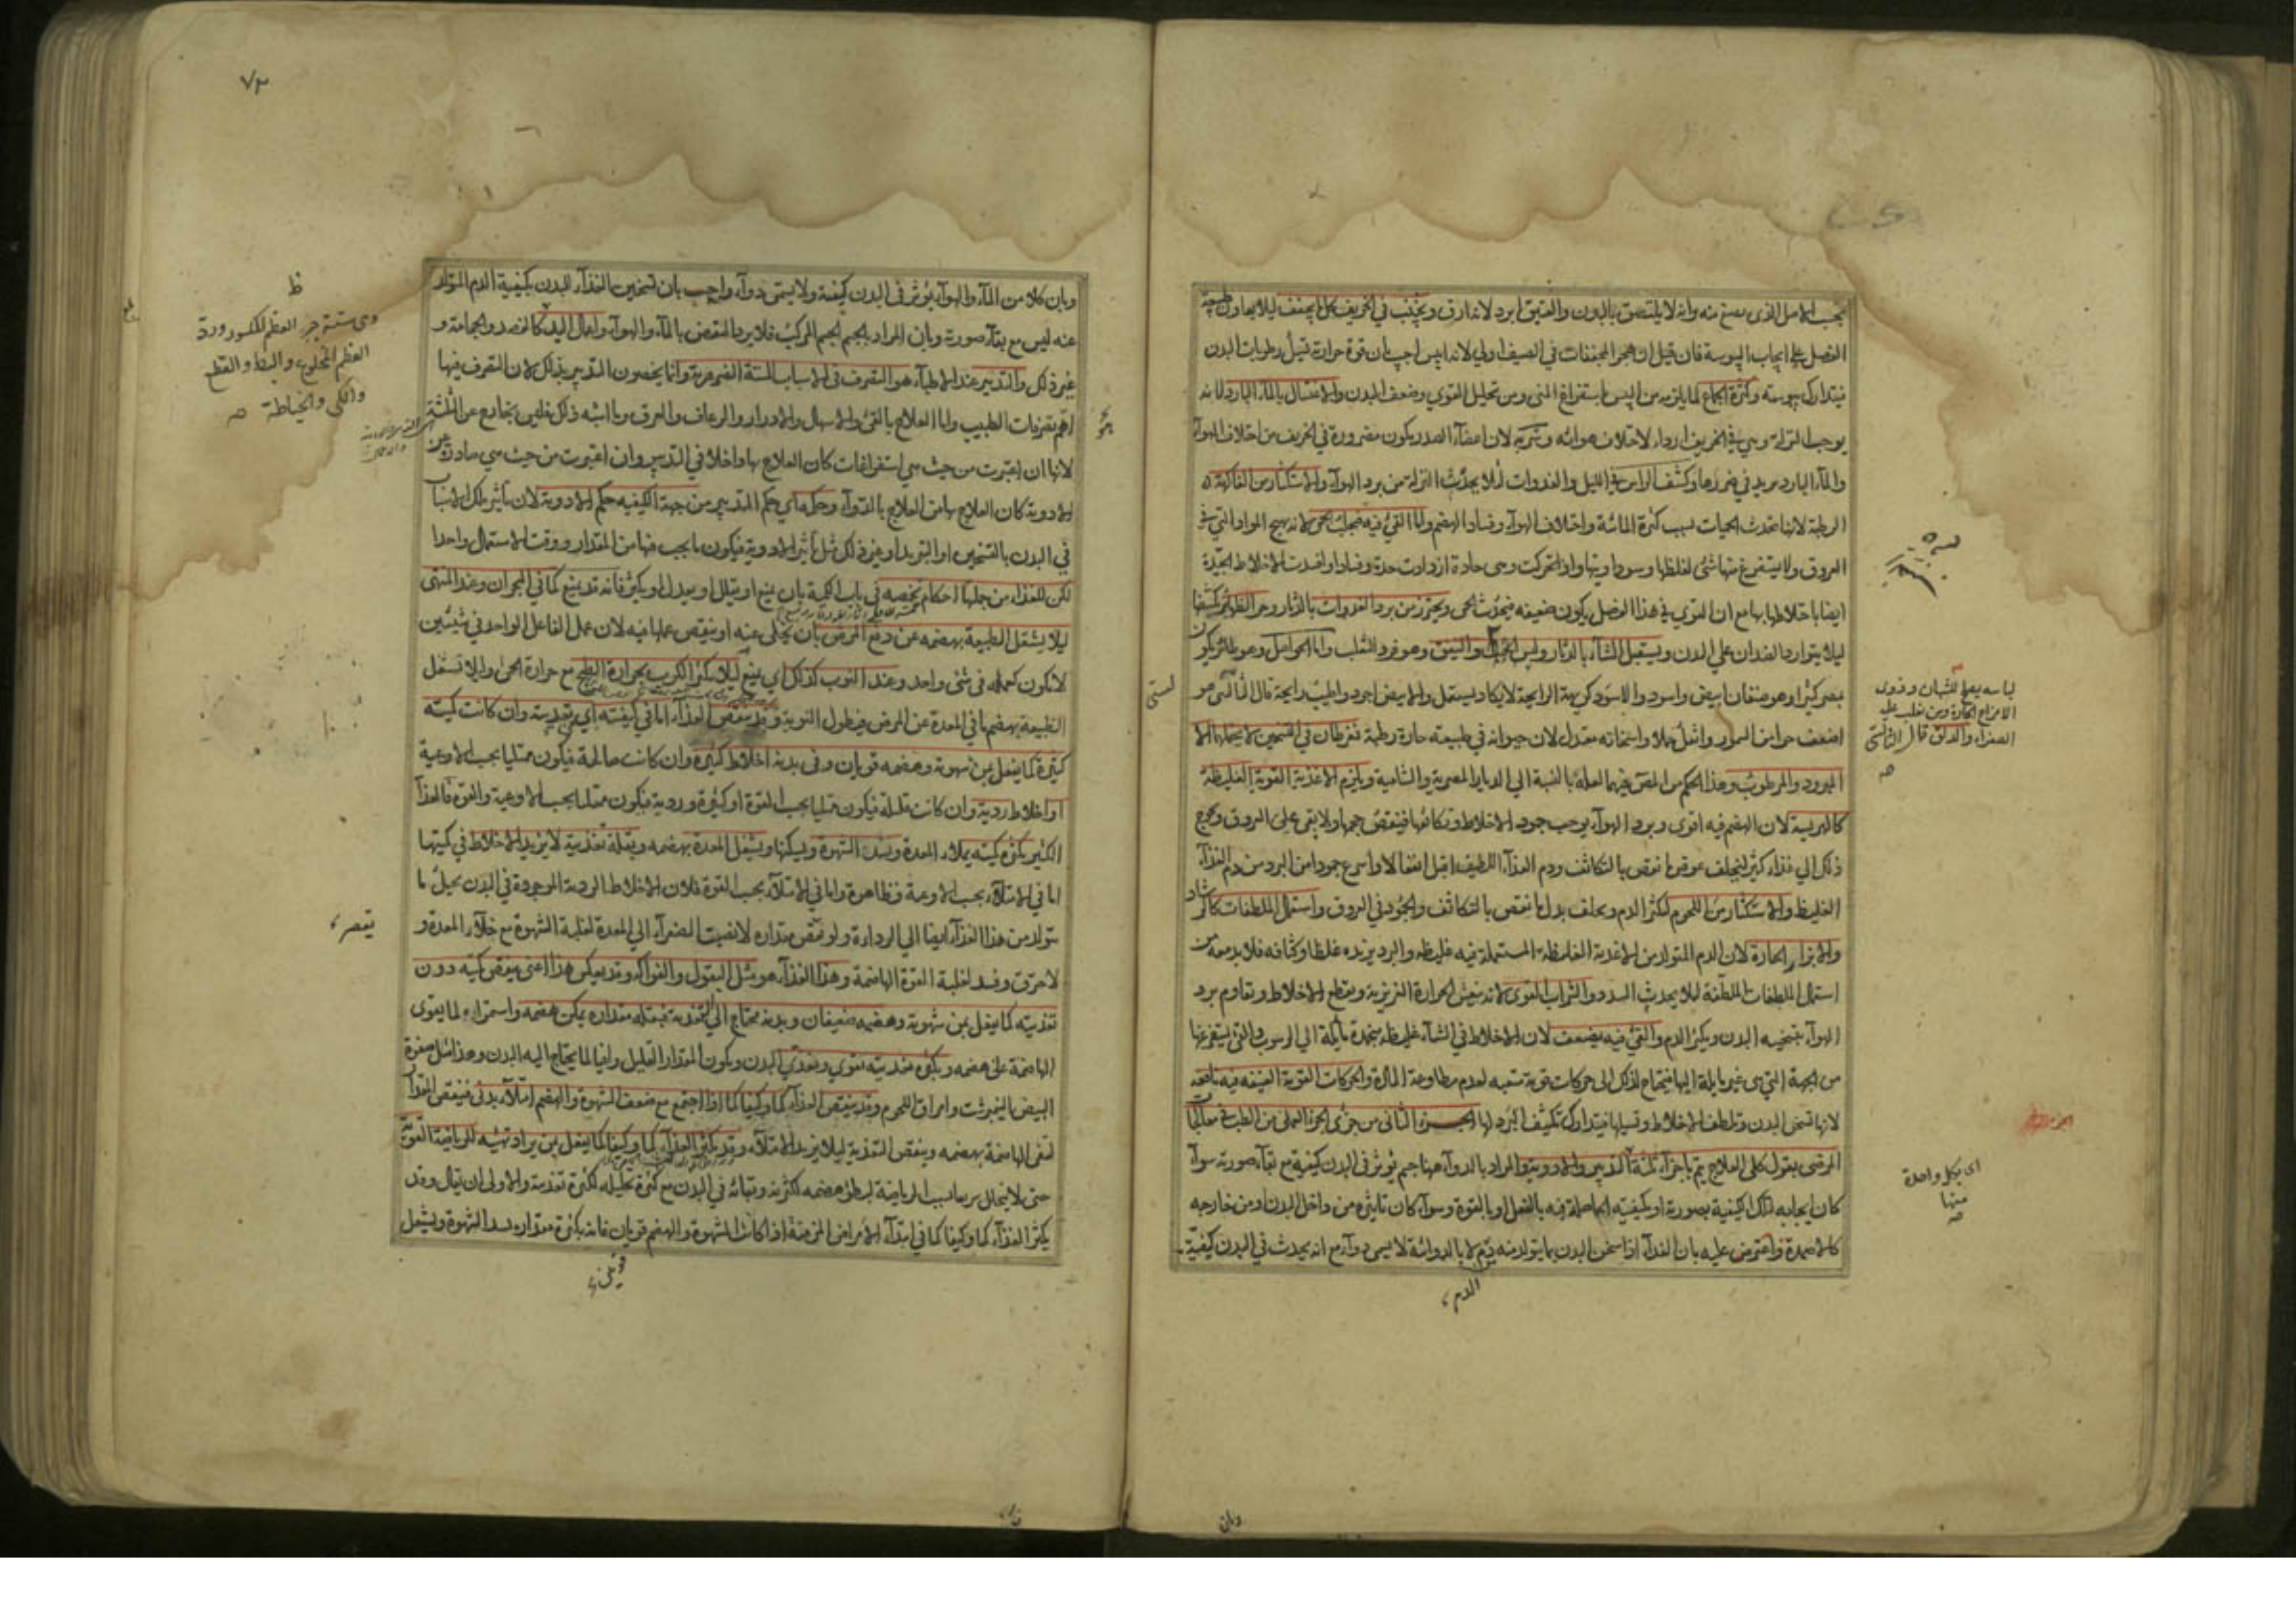 بحسب الاصل الذى يصنع منه وانه لا يلتصق بالبدن والعتيق ابرد لانه ارق ويجتنب في الخريف كل ما يجفف ليلا يعاون طبيعة
الفصل على ايجاب اليبوسة فان قيل ان هجر المجففات في الصيف اولى لانه ايبس اجيب بان قوة حرارته تسيل رطوبات البدن
فيتدارك يبوسته وكثرة الجماع لما يلزمه من اليبس باستفراغ المنى ومن تحليل القوى وضعف البدن والاغتسال بالماء البارد لانه
يوجب النزلة وهي في الخريف ارداء لاختلاف هوائه وشربه لان اعضآء الصدر يكون مضرورة في الخريف من اختلاف الهوآء
والمآء البارد يزيد في ضررها وكشف الراس في الليل والغدوات لئلا يحدث النزلة من برد الهوآء والاستكثار من الفاكهة
الرطبة لانها تحدث الحميات بسبب كثرة المائية واختلاف الهوآء وفساد الهضم واما القئ فيه فيجلب الحمى لانه يهيج المواد التي في
العروق ولا يستفرغ منها شئ لغلظها وسوداويتها واذا تحركت وهى حادة ازدادت حدة وفسادا وافسدت الاخلاط الجيدة
ايضا باختلاطها بها مع ان القوى في هذا الفصل يكون ضعيفة فيحدث الحمى ويحترز من برد الغدوات بالدثار وحر الظهائر
ليلا يتوارد الضدان على البدن ويستقبل الشتآء بالدثار ولبس والنيفق وهو فرو الثعلب واما الحواصل وهو طائر يكون
بمصر كثيرا وهو صنفان ابيض واسود والاسود كريهة الرايحة لا يكاد يستعمل والابيض اجود واطيب رايحة
المبرود والمرطوب وهذا الحكم من المصنف فيهما لعله بالنسبة الى الديار المصرية والشامية ويلزم الاغذية القوية الغليظة
كالهريسة لان الهضم فيه اقوى وبرد الهوآء يوجب جمود الاخلاط وتكاثفها فينقص حجمها ولا يبقى على العروق ويحوج
ذلك الى غذاء كثير ليخلف عوض ما نقص بالتكاثف ودم الغذآء اللطيف اقبل انفعالا واسرع جمودا من البرد من دم الغذآء
الغليظ والاستكثار من اللحوم ليكثر الدم ويخلف بدل ما نقص بالتكاثف والجمود في العروق واستعمال الملطفات كالرشاد
والابزار الحارة لان الدم المتولد من الاغذية الغليظة المستعملة فيه غليظ والبرد يزيده غلظا وكثافة فلا بد معه من
استعمال الملطفات الملطفة ليلا يحدث السدد والشراب القوى لانه ينعش الحرارة الغريزية ويقطع الاخلاط ويقاوم برد
الهوآء بتسخينه البدن ويكثر الدم والقئ فيه يضعف لان الاخلاط في الشتآء غليظة جمدة مائلة الى الرسوب والقئ يستفرغها
من الجهة التي هي غير مايلة اليها فيحتاج لذلك الى حركات قوية متعبة لعدم مطاوعة المادة والحركات القوية العنيفة فيه نافعة
لانها تسخن البدن وتلطف الاخلاط وتسيلها فيتدارك تكثيف البرد لها الجزء الثانى من جزئى الجزء العملى من الطب في معالجات
المرضى بقول كلى العلاج يتم باجزآء ثلثة التدبير والادوية والمراد بالدوآء ههنا جسم يؤثر في البدن كيفية مع بقآء صورته سوآء
كان ايجابه لتلك الكيفية بصورته او بكيفيته الحاصلة فيه بالفعل او بالقوة وسوآء كان تاثيره من داخل البدن او من خارجه
كالاضمدة واعترض عليه بان الغذآء اذا سخن البدن بما يتولد منه لا بالدوائية لا يسمى دوآء مع انه يحدث في البدن كيفية
الدم
لباسه يصلح للشبان وذوى
الامزاج الحارة ومن يغلب عليه
الصفراء والدلق قال الثالثى
صه
اى بكل واحدة
منها
صه
وبان
٧٣
وبان كلا من المآء والهوآء يؤثر في البدن كيفية ولا يسمى دوآء واجيب بان تسخين الغذآء للبدن بكيفية الدم المتولد
عنه ليس مع بقآء صورته وبان المراد بالجسم الجسم المركب فلا يرد النقض بالمآء والهوآء واعمال اليد كالفصد والحجامة و
غير ذلك والتدبير عند الاطبآء هو التصرف في الاسباب الستة الضرورية وانما يخصون التدبير بذلك لان التصرف فيها
اهم تصرفات الطبيب واما العلاج بالقئ والاسهال والادرار والرعاف والعرق وما اشبه ذلك فليس بخارج عن الثلثة
لانها ان اعتبرت من حيث هي استفراغات كان العلاج بها داخلا في التدبير وان اعتبرت من حيث هي صادرة عن
الادوية كان العلاج بها من العلاج بالدوآء وحكمه اى حكم التدبير من جهة الكيفية حكم الادوية لان تاثير تلك الاسباب
في البدن بالتسخين او التبريد او غير ذلك مثل تاثير الادوية فيكون ما يجب فيها من المقدار ووقت الاستعمال واحدا
لكن للغذاء من جملتها احكام تخصه في باب الكمية بان يمنع او يقلل او يعدل او يكثر فانه قد يمنع كما في البحران وعند المنتهى
ليلا يشتغل الطبيعة بهضمه عن دفع المرض بان يخلى عنه او ينقص عملها فيه لان عمل الفاعل الواحد في شيئين
لا يكون كعمله في شئ واحد وعند النوب كذلك اى يمنع ليلا يكثر الكرب بحرارة الطبخ مع حرارة الحمى ولا يشتغل
الطبيعة بهضم ما في المعدة عن المرض فيطول النوبة وقد ينقص الغذآء اما في كيفيته اى تغذيته وان كانت كميته
كثيرة كما يفعل بمن شهوته وهضمه قويان وفى بدنه اخلاط كثيرة وان كانت صالحة فيكون ممتليا بحسب الاوعية
او اخلاط ردية وان كانت قليلة فيكون ممتليا بحسب القوة او كثيرة وردية فيكون ممتليا بحسب الاوعية والقوة فالغذآء
الكثير بكثرة كميته يملاء المعدة ويسد الشهوة ويسكنها ويشغل المعدة بهضمه وبقلة تغذيته لا يزيد الاخلاط في كميتها
اما في الامتلآء بحسب الاوعية فظاهر واما في الامتلآء بحسب القوة فلان الاخلاط الردية الموجودة في البدن يحيل ما
يتولد من هذا الغذآء ايضا الى الردارة ولو نقص مقداره لانصبت الصفرآء الى المعدة لغلبة الشهوة مع خلآء المعدة و
لاحترق وفسد لغلبة القوة الهاضمة وهذا الغذآء هو مثل البقول والفواكه وقد يعكس هذا اعنى ينقص كميته دون
تغذيته كما يفعل بمن شهوته وهضمه ضعيفان وبدنه محتاج الى التغذية فبقلة مقداره يمكن هضمه واستمراره لما يقوى
الهاضمة على هضمه وبكثرة تغذيته يقوى ويغذى البدن ويكون المقدار القليل وافيا لما يحتاج اليه البدن وهذا مثل صفرة
البيض النيمبرشت وامراق اللحوم وقد ينقص الغذآء كما وكيفا كما اذا اجتمع مع ضعف الشهوة والهضم امتلآء بدنى فينقص الغذآء
لتفى الهاضمة بهضمه وينقص التغذية ليلا يزيد الامتلآء وقد يكثر الغذآء كما وكيفا كما يفعل بمن يراد تهيئه للرياضة القوية
حتى لا يتحلل سريعا بسبب الرياضة لبطؤ هضمه لكثرته وثباته في البدن مع كثرة تحليله لكثرة تغذيته والاولى ان يقال وقد
يكثر الغذآء كما وكيفا كما في ابتدآء الامراض المزمنة اذا كانت الشهوة والهضم قويان فانه بكثرة مقداره يسد الشهوة ويشغل
ظ
وهى ستة جبر العظم المكسور ورد
العظم المخلوع والبط والقطع
والكى والخياطة صه